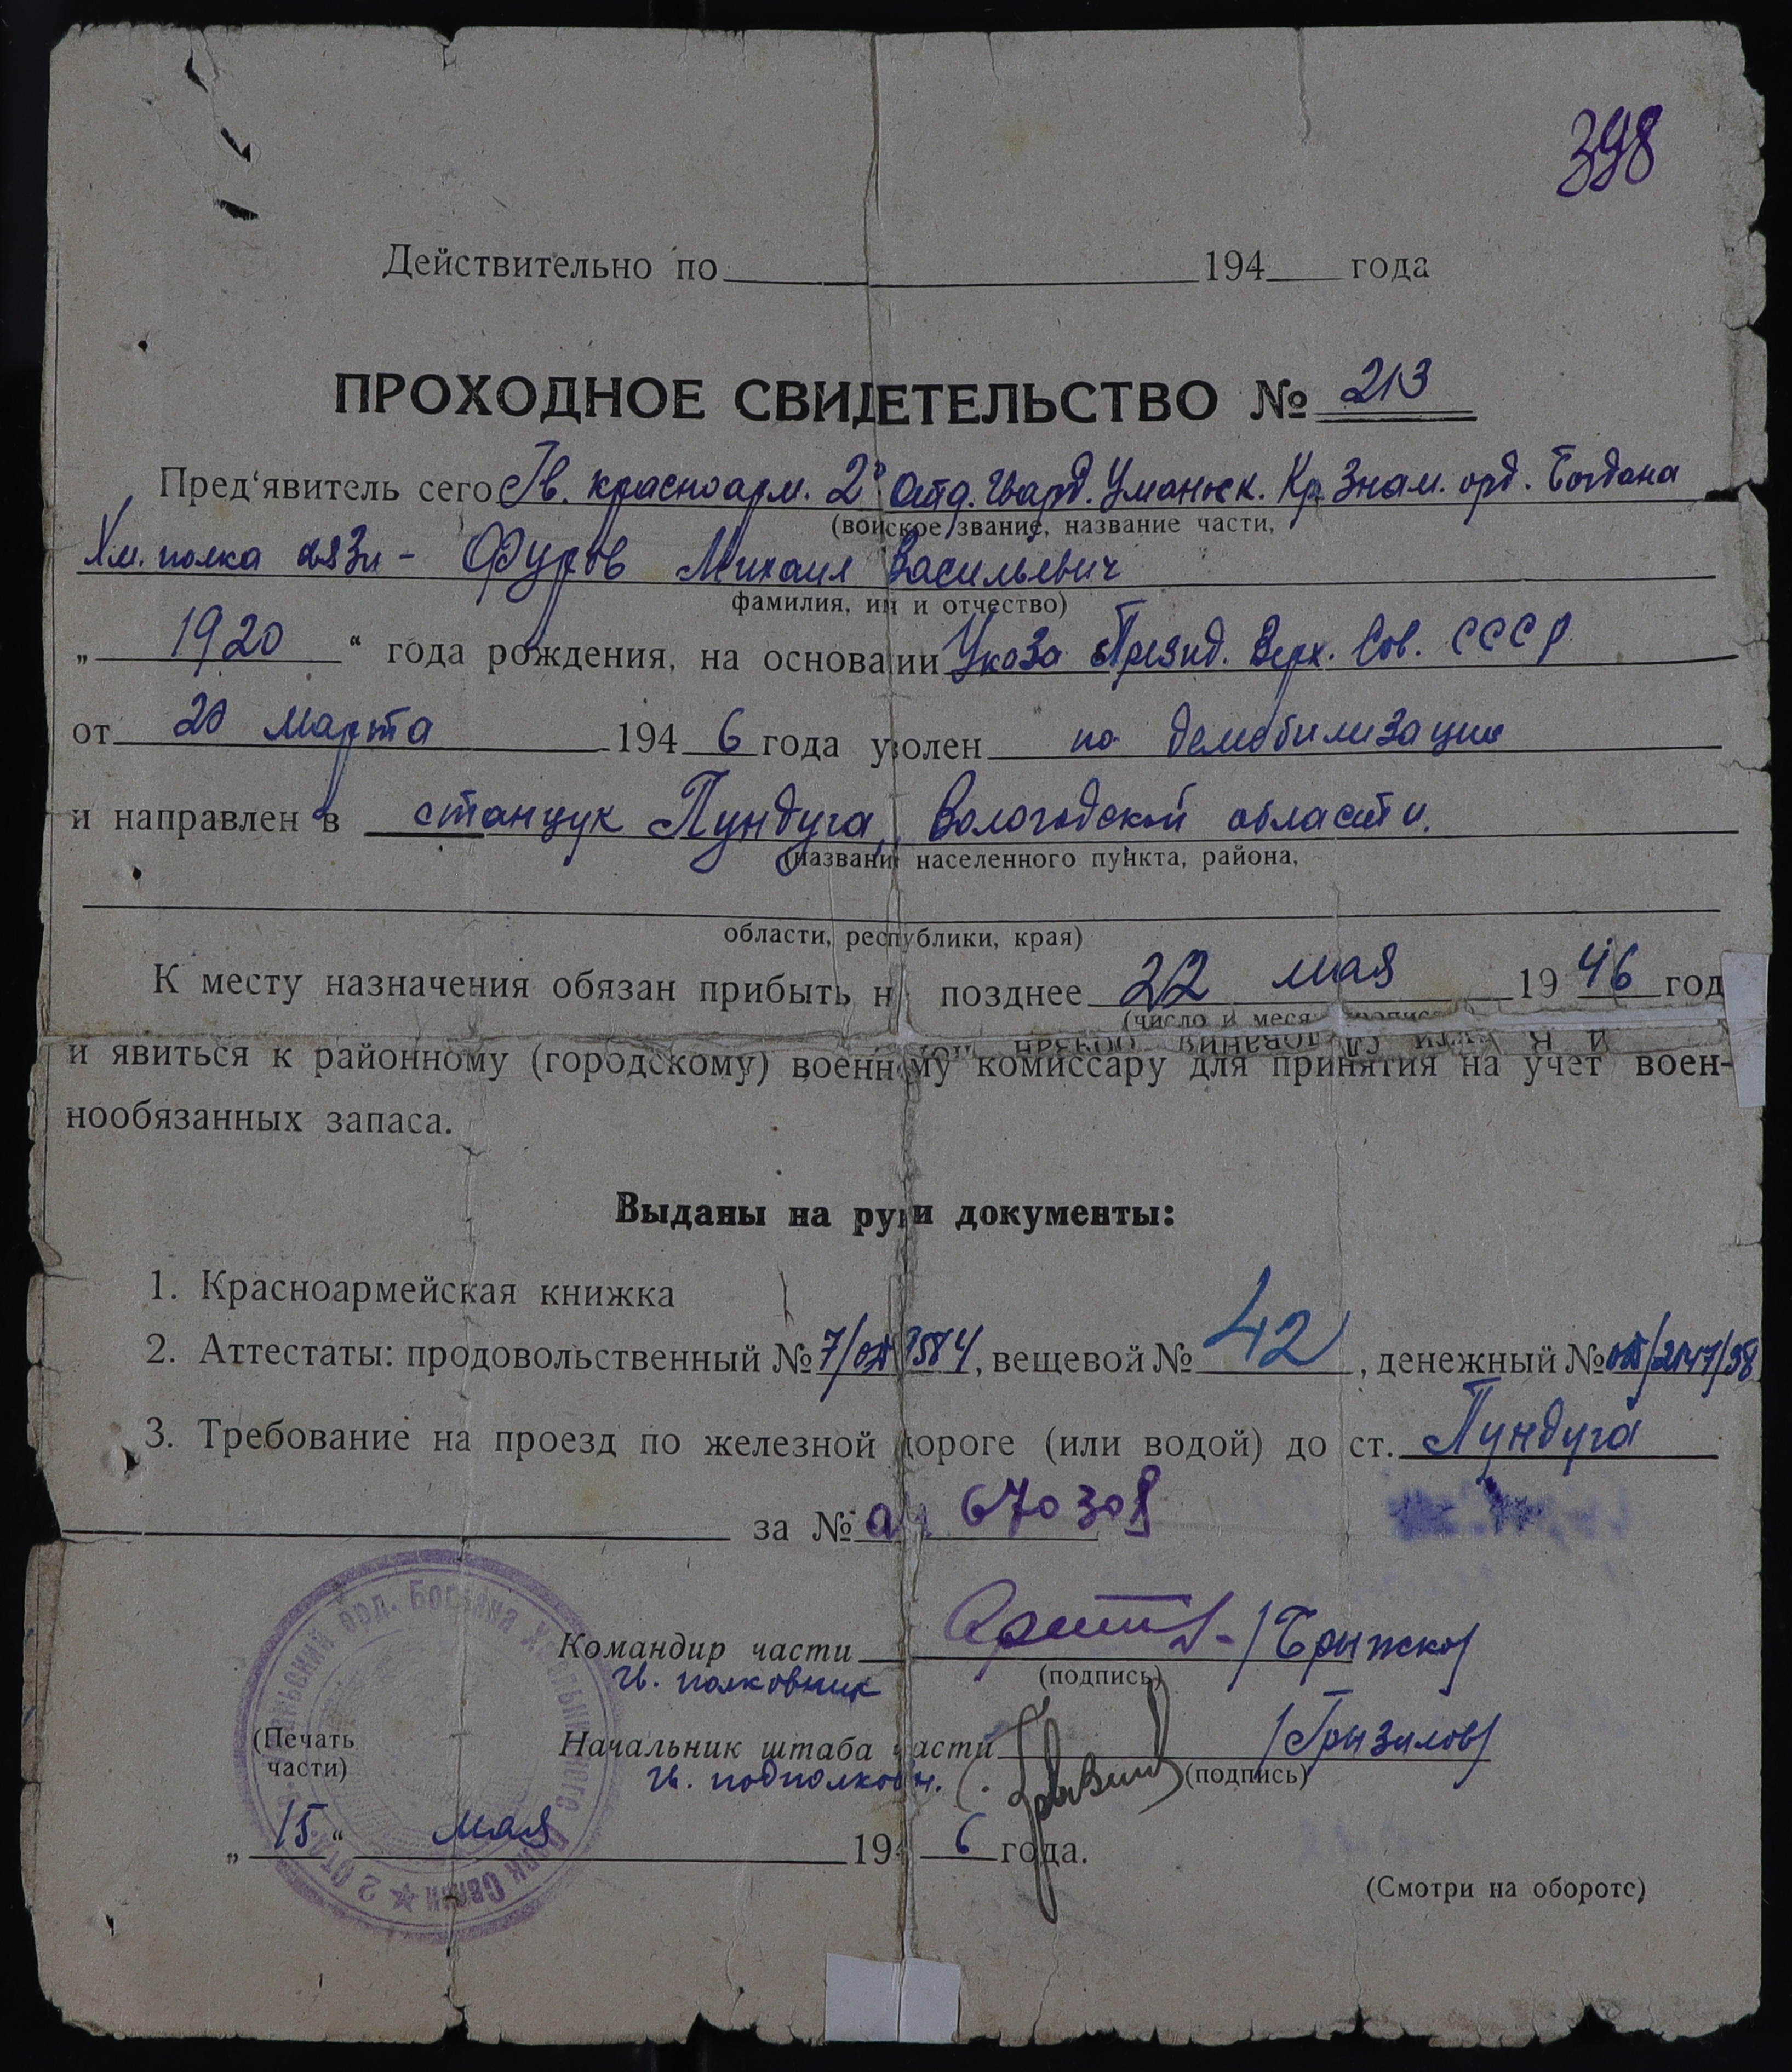 398
Действительно по 194 года
ПРОХОДНОЕ СВИДЕТЕЛЬСТВО № 213
Пред'явитель сего Гв. красноарм. 2й Отд. Гвард. Уманьск. Кр. Знам. орд. Богдана
(воиское звание, название части,
Хм. полка связи - Фуров Михаил Васильевич
фамилия, им и отчество)
„ 1920 “ года рождения, на основании Указа Презид. Верх. Сов. СССР
от 20 марта 194 6 года уволен по демобилизации
и направлен в станцук Пундуга, Вологодской области.
(названи населенного пункта, района,
области, республики, края)
К месту назначения обязан прибыть н позднее 22 мая 19 46 год
(число и меся
и явиться к районному (городскому) военному комиссару для принятия на учет воен-
нообязанных запаса.
Выданы на руки документы:
1. Красноармейская книжка
2. Аттестаты: продовольственный № 7/ 3584, вещевой № 42, денежный № /2147/38
3. Требование на проезд по железной дороге (или водой) до ст. Пундуга
за № 670308
Командир части
(подпись)
Гв. полковник
(Печать
части)
Начальник штаба части /Грызилов/
(подпись)
Гв. подполковн.
„ 15 “ мая 194 6 года.
(Смотри на обороте)
орд. Богдана Хмельницкого Полк Связи ★ 2 Отд.